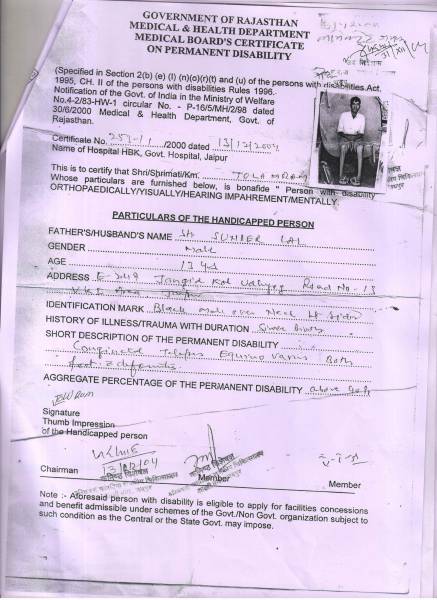 GOVERNMENT OF RAJASTHAN
MEDICAL & HEALTH DEPARTMENT
MEDICAL BOARD'S CERTIFICATE
ON PERMANENT DISABILITY
(Specified in Section 2(b) (e) (l) (n)(o)(r)(t) and (u) of the persons with disabilities Act,
1995, CH. II of the persons with disabilities Rules 1996.
Notification of the Govt. of India in the Ministry of Welfare
No.4-2/83-HW-1 circular No. - P-16/5/MH/2/98 dated
30/6/2000 Medical & Health Department, Govt. of
Rajasthan.
Certificate No. /2000 dated 13/12/2004
Name of Hospital HBK, Govt. Hospital, Jaipur
This is to certify that Shri/Shrimati/Km. TOLA RRAM
Whose particulars are furnished below, is bonafide " Person with disability
ORTHOPAEDICALLY/YISUALLY/HEARING IMPAHREMENT/MENTALLY.
PARTICULARS OF THE HANDICAPPED PERSON
FATHER'S/HUSBAND'S NAME Sh SUNDER LAL
GENDER Male
AGE 13 yrs
ADDRESS E-249 Jangid Road No-13
IDENTIFICATION MARK Black mole over Neck
HISTORY OF ILLNESS/TRAUMA WITH DURATION Since birth
SHORT DESCRIPTION OF THE PERMANENT DISABILITY
Equino varus Both
feet
AGGREGATE PERCENTAGE OF THE PERMANENT DISABILITY above
Signature
Thumb Impression
of the Handicapped person
13/12/04
Chairman
Member
Member
Note :- Aforesaid person with disability is eligible to apply for facilities concessions
and benefit admissible under schemes of the Govt./Non Govt. organization subject to
such condition as the Central or the State Govt. may impose.